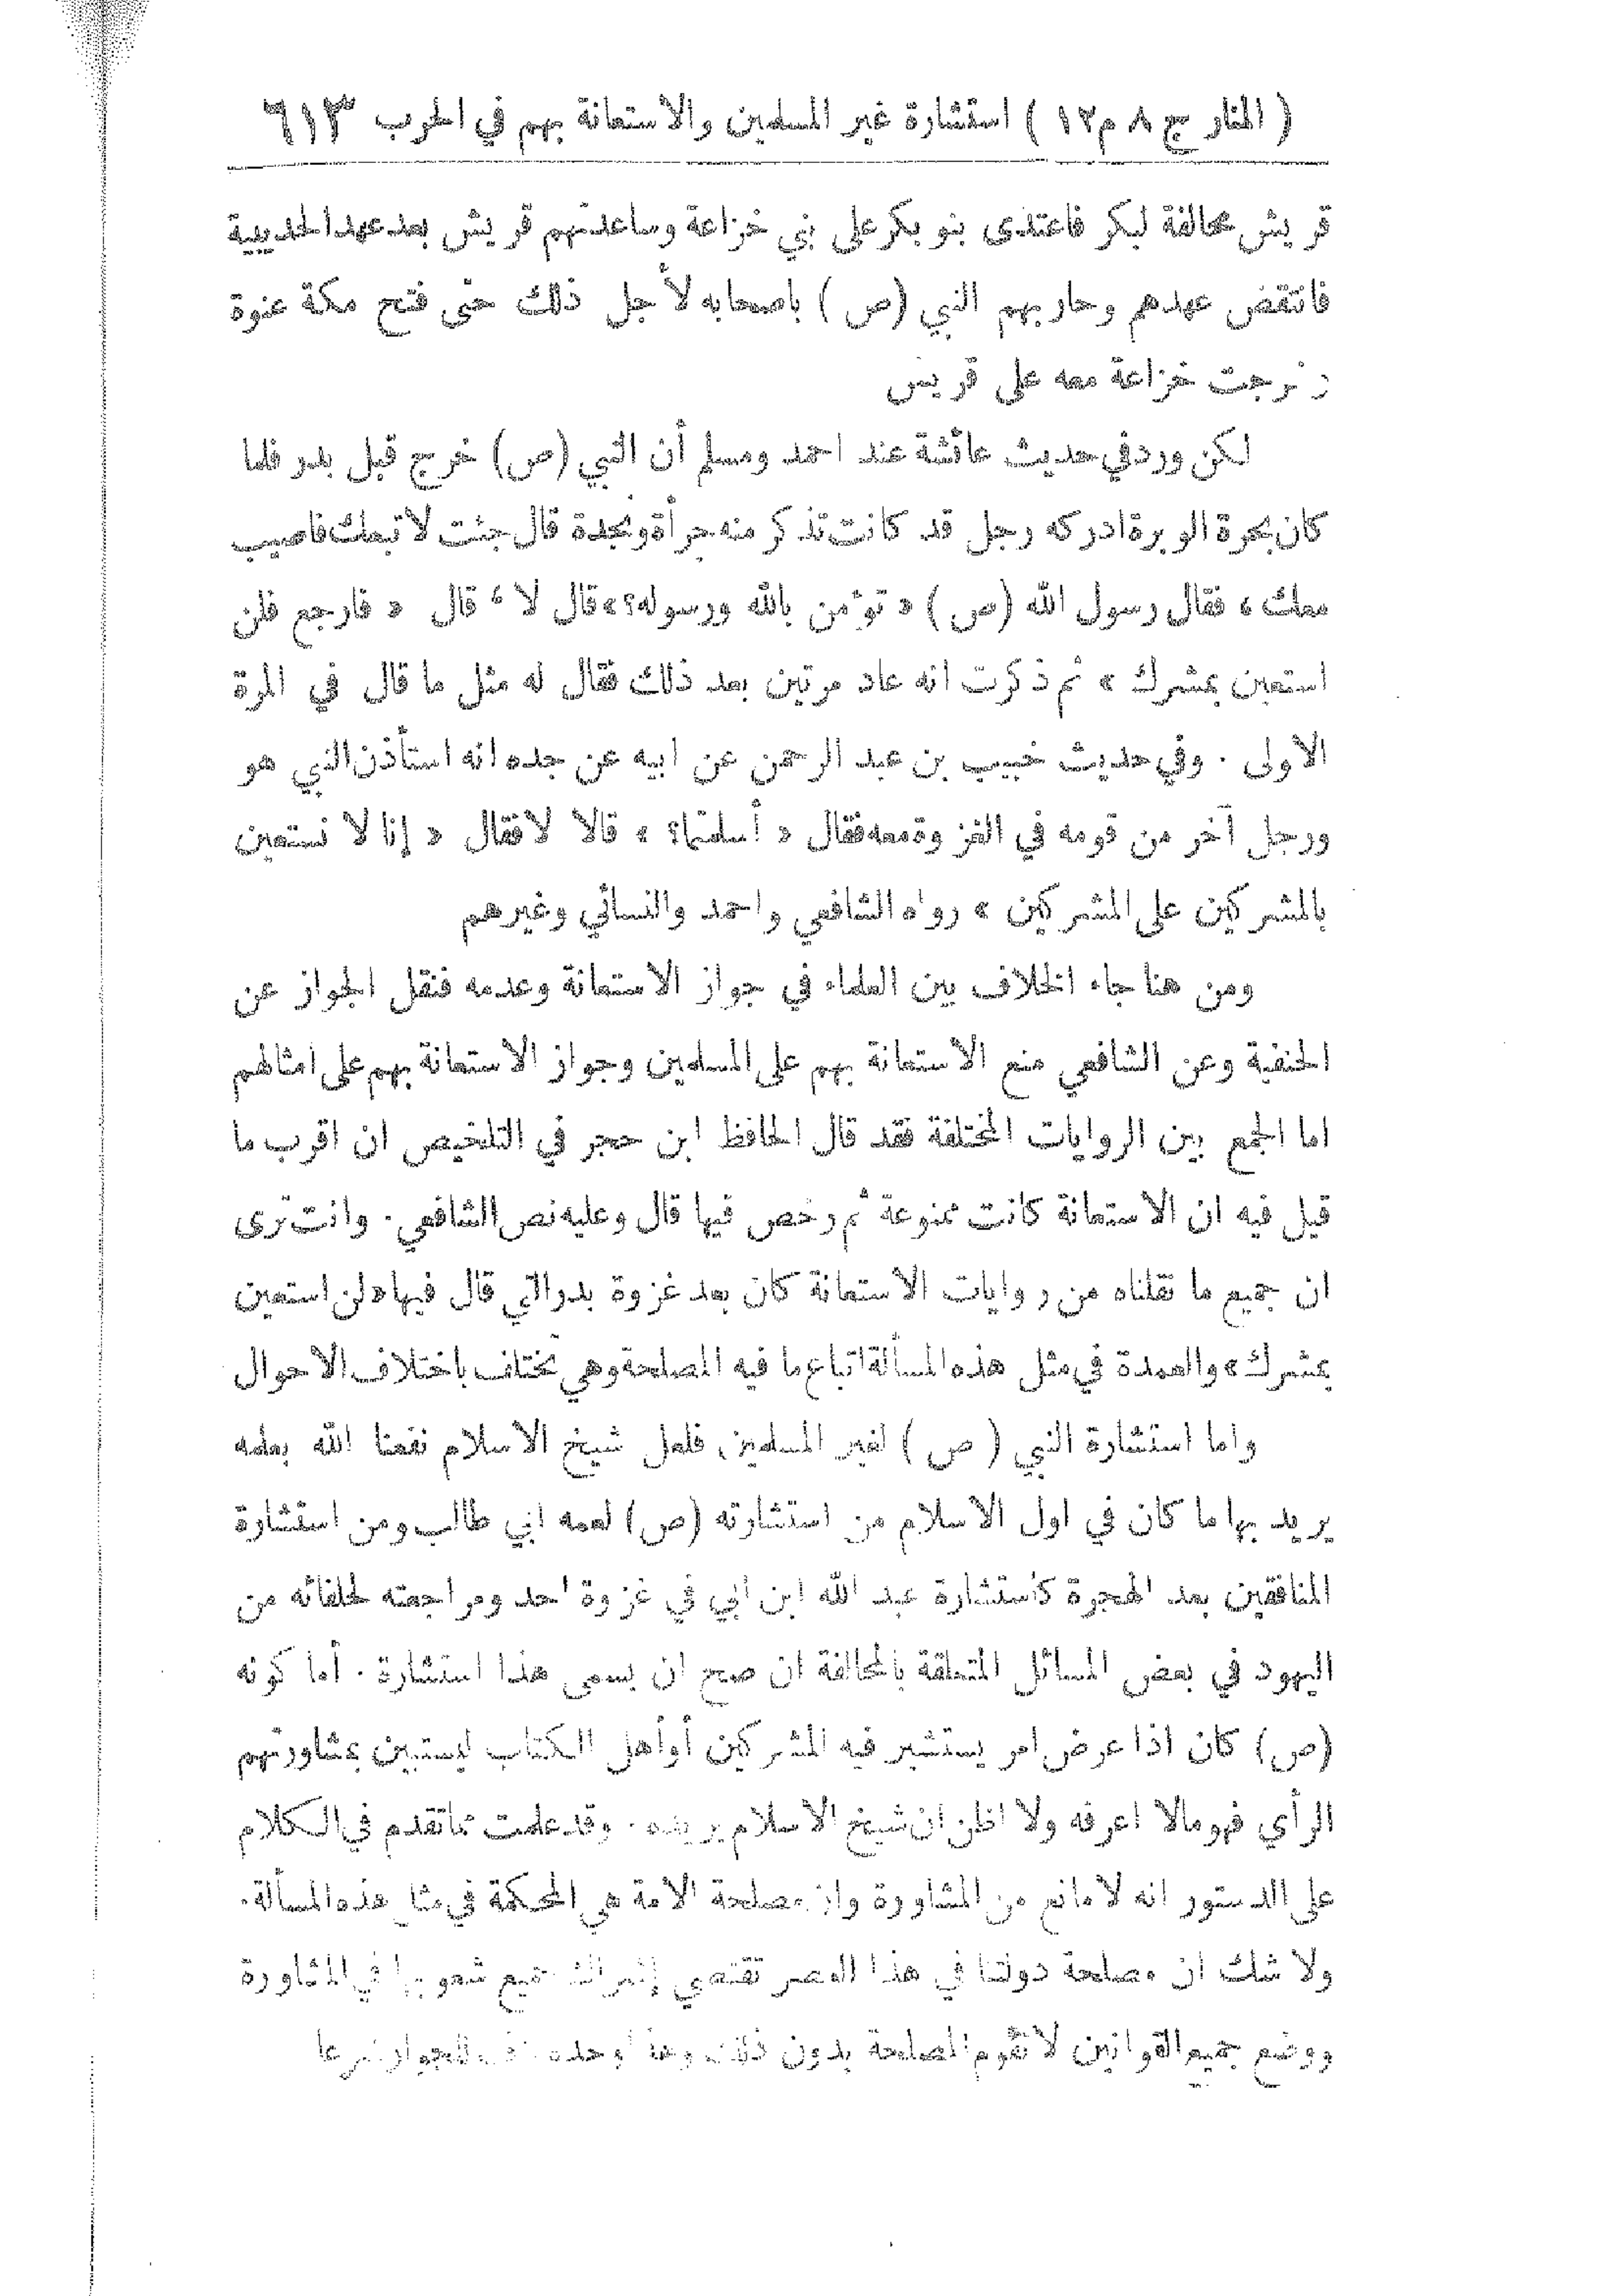 ( المنار ج ٨ م ١٢ ) استشارة غير المسلمين والاستعانة بهم في الحرب ٦١٣
قريش محالفة لبكر فاعتدى بنو بكر على بني خزاعة وساعدتهم قريش بعد عهد الحديبية
فانتقض عهدهم وحاربهم النبي (ص) باصحابه لأجل ذلك حتى فتح مكة عنوة
خزاعة معه على قريش
لكن ورد في حديث عائشة عند احمد ومسلم أن النبي (ص) خرج قبل بدر فلما
كان بحرة الوبرة ادركه رجل قد كانت تذكر منه جرأة ونجدة قال جئت لاتبعك فاصيب
معك ، فقال رسول الله (ص) « تؤمن بالله ورسوله؟ » قال لا ، قال « فارجع فلن
استعين بمشرك » ثم ذكرت انه عاد مرتين بعد ذلك فقال له مثل ما قال في المرة
الاولى . وفي حديث خبيب بن عبد الرحمن عن ابيه عن جده انه استأذن النبي هو
ورجل آخر من قومه في الغزوة معه فقال « أسلمتما؟ » قالا لا فقال « إنا لا نستعين
بالمشركين على المشركين » رواه الشافعي واحمد والنسائي وغيرهم
ومن هنا جاء الخلاف بين العلماء في جواز الاستعانة وعدمه فنقل الجواز عن
الحنفية وعن الشافعي منع الاستعانة بهم على المسلمين وجواز الاستعانة بهم على امثالهم
اما الجمع بين الروايات المختلفة فقد قال الحافظ ابن حجر في التلخيص ان اقرب ما
قيل فيه ان الاستعانة كانت ممنوعة ثم رخص فيها قال وعليه نص الشافعي . وانت ترى
ان جميع ما نقلناه من روايات الاستعانة كان بعد غزوة بدر التي قال فيها « لن استعين
بمشرك » والعمدة في مثل هذه المسألة اتباع ما فيه المصلحة وهي تختلف باختلاف الاحوال
واما استشارة النبي (ص) لغير المسلمين فلعل شيخ الاسلام نفعنا الله بعلمه
يريد بها ما كان في اول الاسلام من استشارته (ص) لعمه ابي طالب ومن استشارة
المنافقين بعد الهجرة كاستشارة عبد الله ابن ابي في غزوة احد ومراجعته لحلفائه من
اليهود في بعض المسائل المتعلقة بالمحالفة ان صح ان يسمى هذا استشارة . أما كونه
(ص) كان اذا عرض امر يستشير فيه المشركين أو أهل الكتاب ليستبين بمشاورتهم
الرأي فهو مالا اعرفه ولا اظن ان شيخ الاسلام يريده . وقد علمت مما تقدم في الكلام
على الدستور انه لا مانع من المشاورة وان مصلحة الامة هي المحكمة في مثل هذه المسألة .
ولا شك ان مصلحة دولتنا في هذا العصر تقتضي إشراك جميع شعوبها في المشاورة
ووضع جميع القوانين لا تقوم المصلحة بدون ذلك وهذا وحده للجواز شرعا